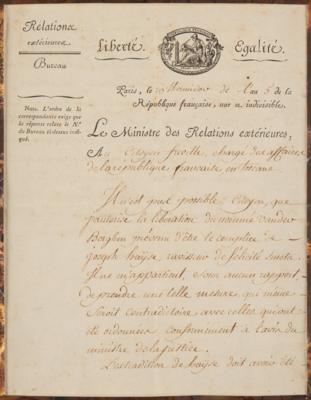 Relations
extérieures
Bureau
Liberté. Egalité.
Paris, le 20 Messidor de l'an 5 de la
République française, une et indivisible.
Nota. L'ordre de la
correspondance exige que
la réponse relate le N.º
du Bureau ci-dessus indi-
qué.
Le Ministre des Relations extérieures,
Au Citoyen freville, chargé des affaires
de la république française en toscane
Il n'est pas possible, citoyen, que
j'autorise la libération du nommé
prévenu d'être le complice de
joseph hayse ravisseur de félicité
Il ne m'appartient, sous aucun rapport
de prendre une telle mesure, qui même
seroit contradictoire avec celles qui ont
été ordonnées, conformément à l'avis du
ministre de la justice.
L'extradition de hayse doit avoir été